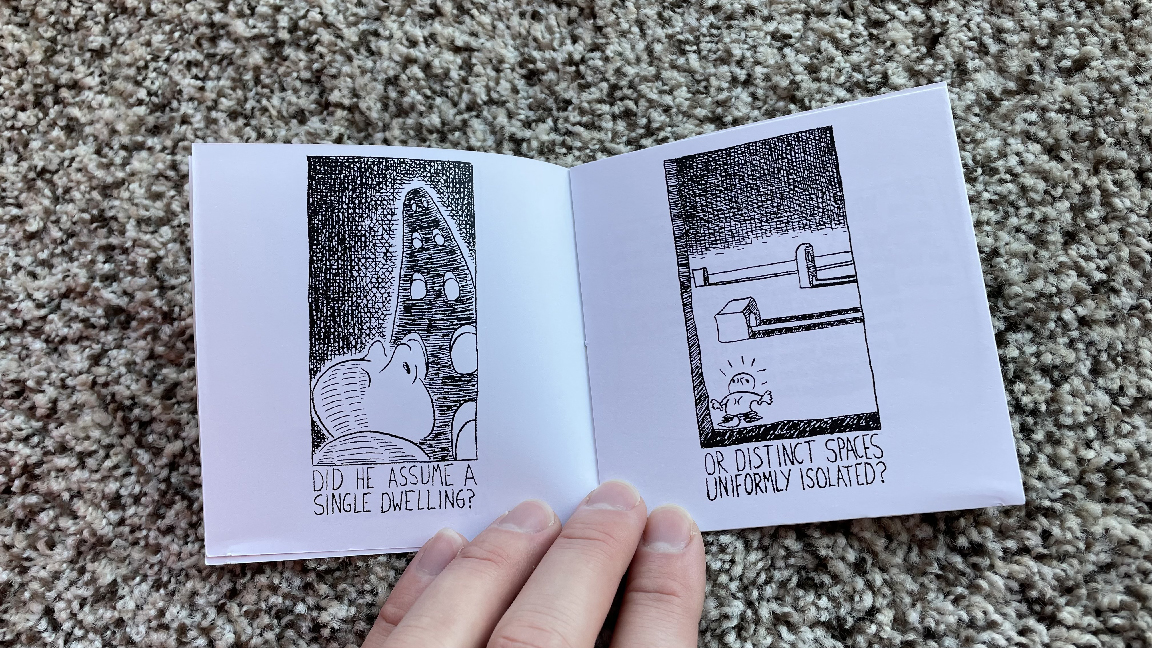 DID HE ASSUME A
SINGLE DWELLING?
OR DISTINCT SPACES
UNIFORMLY ISOLATED?